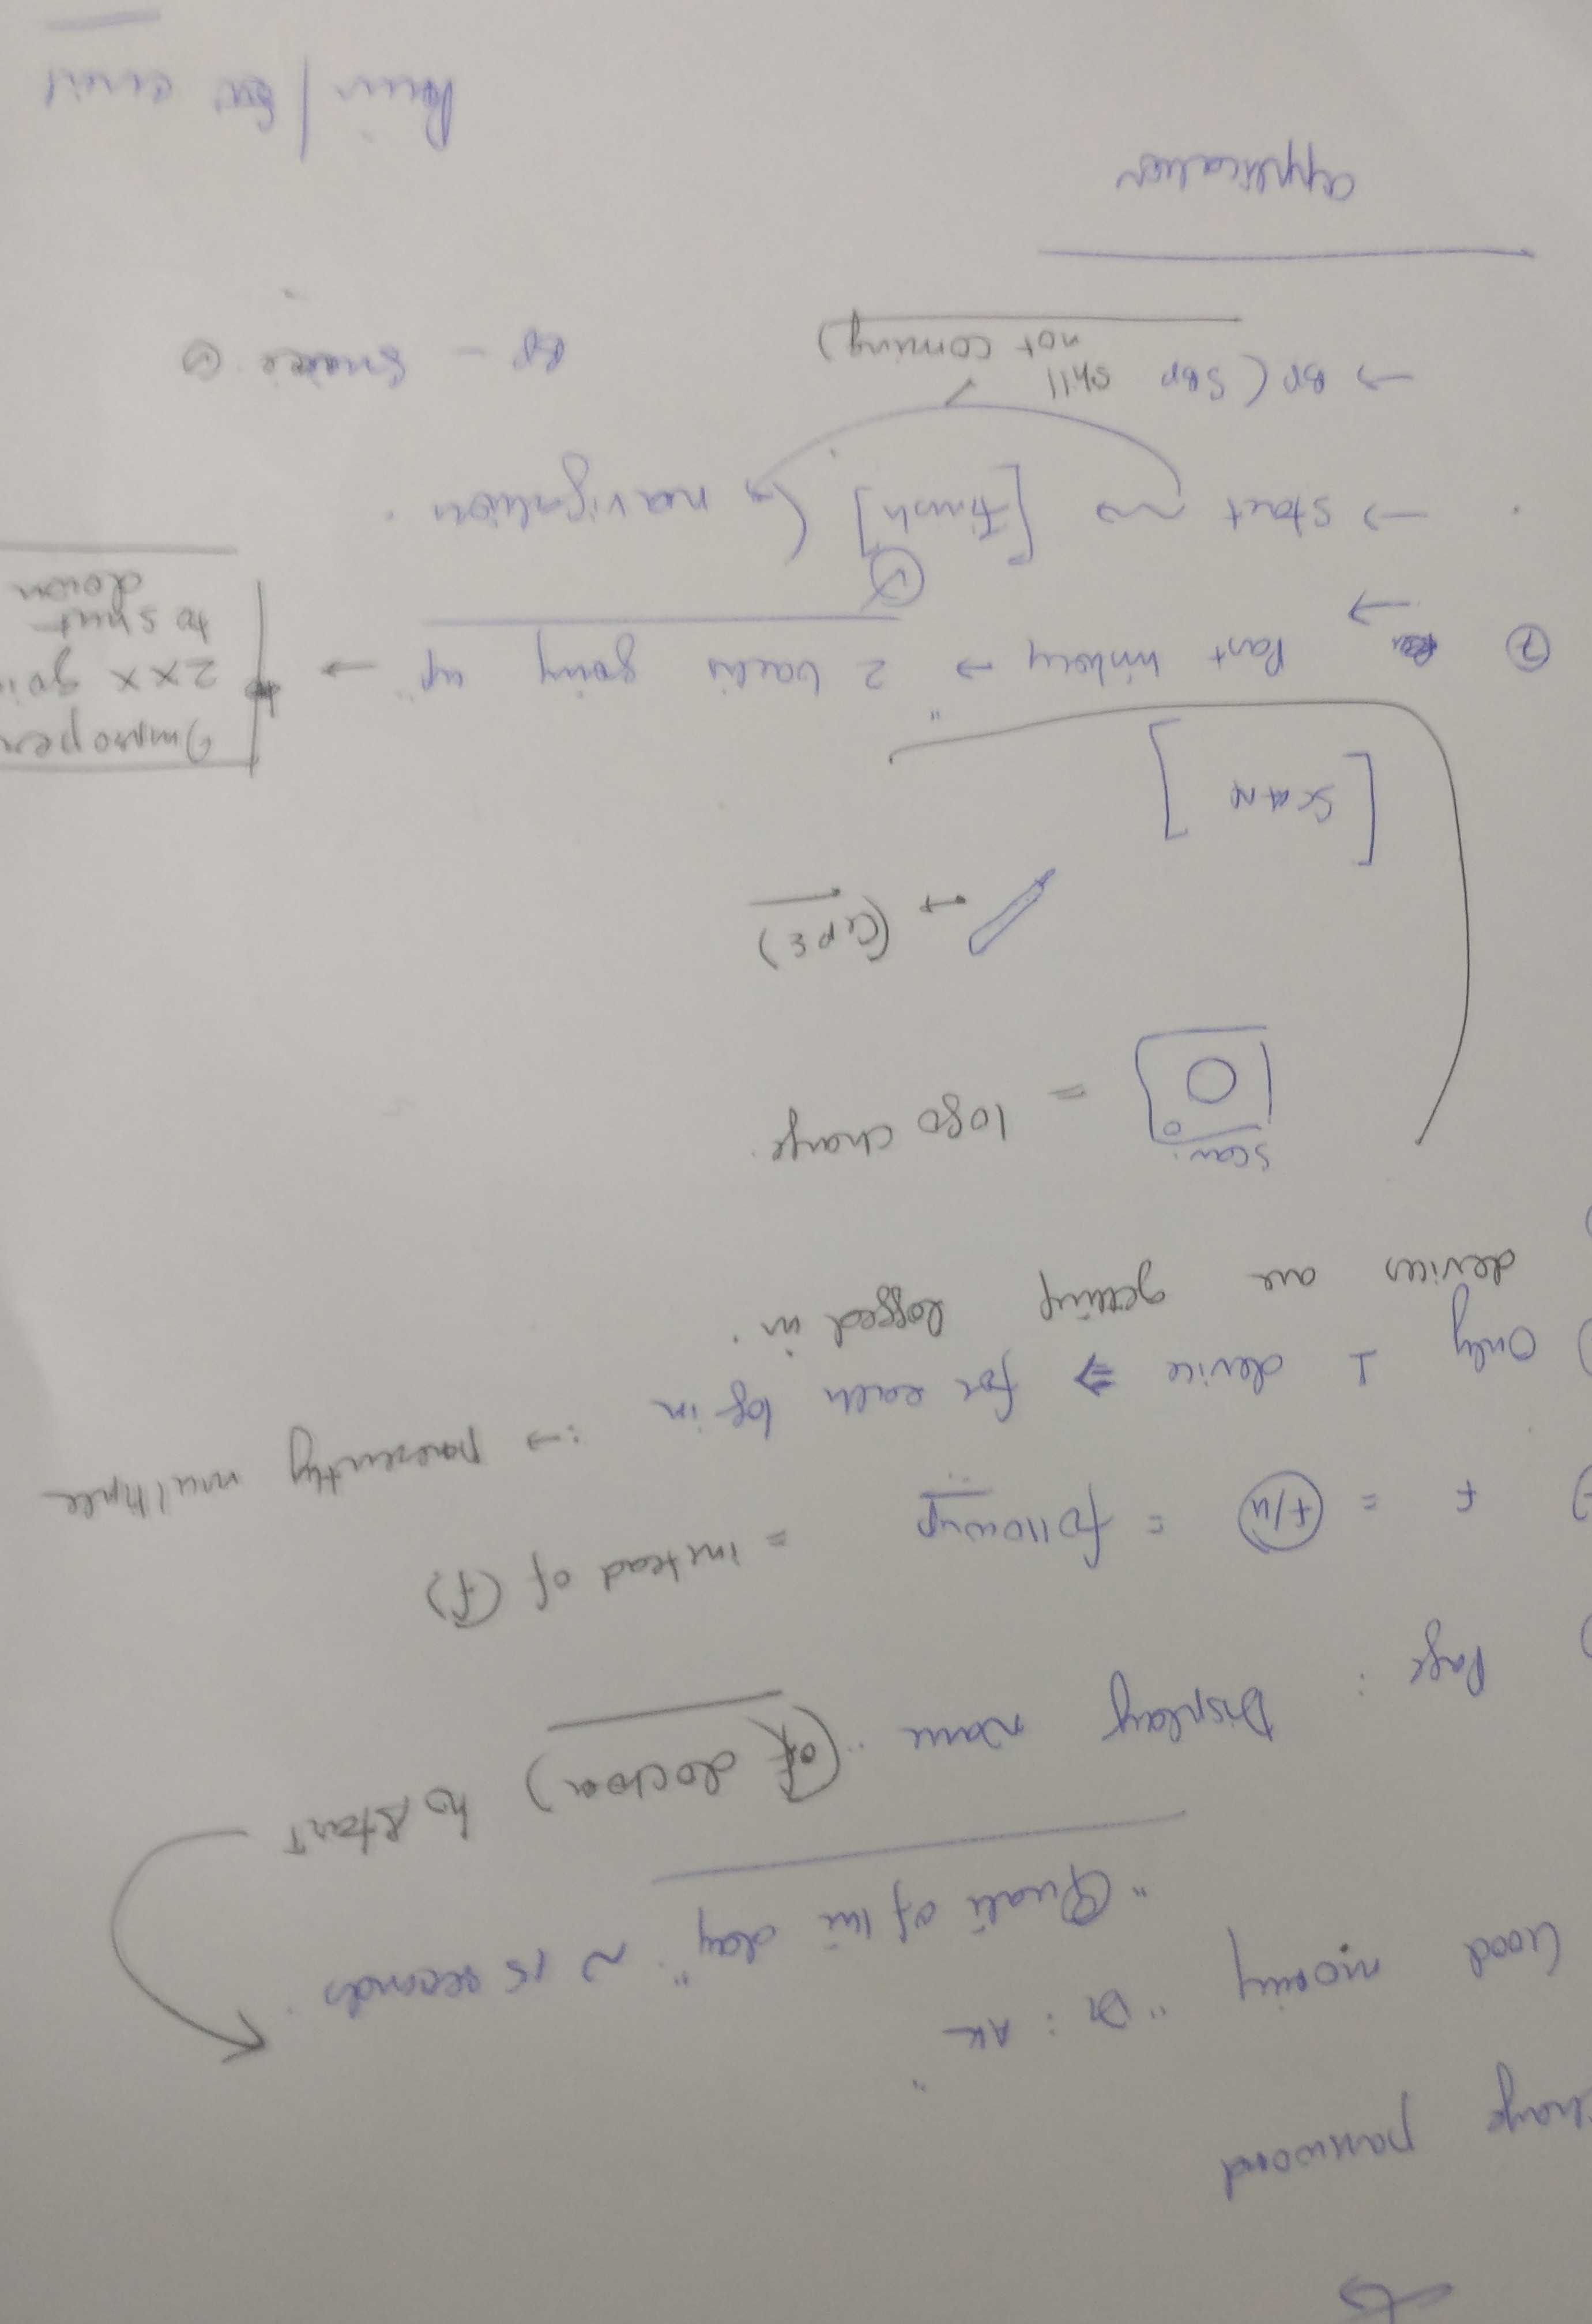 change password
Good morning "Dr : AK"
"Quote of the day" ~ 15 seconds.
Page : Display name (of doctor) to start
F = F/U = followup = instead of (F)
Only 1 device ⇒ for each log in :→ presently multiple
devices are getting logged in.
Scan
= logo change.
→ (CIPE)
[SCAN]
⑦ → Past history → "2 going up" →
2xx
to shut
down
→ Start ~ [Finish] navigation.
→ BP (SBP still
not coming)
BP -
application